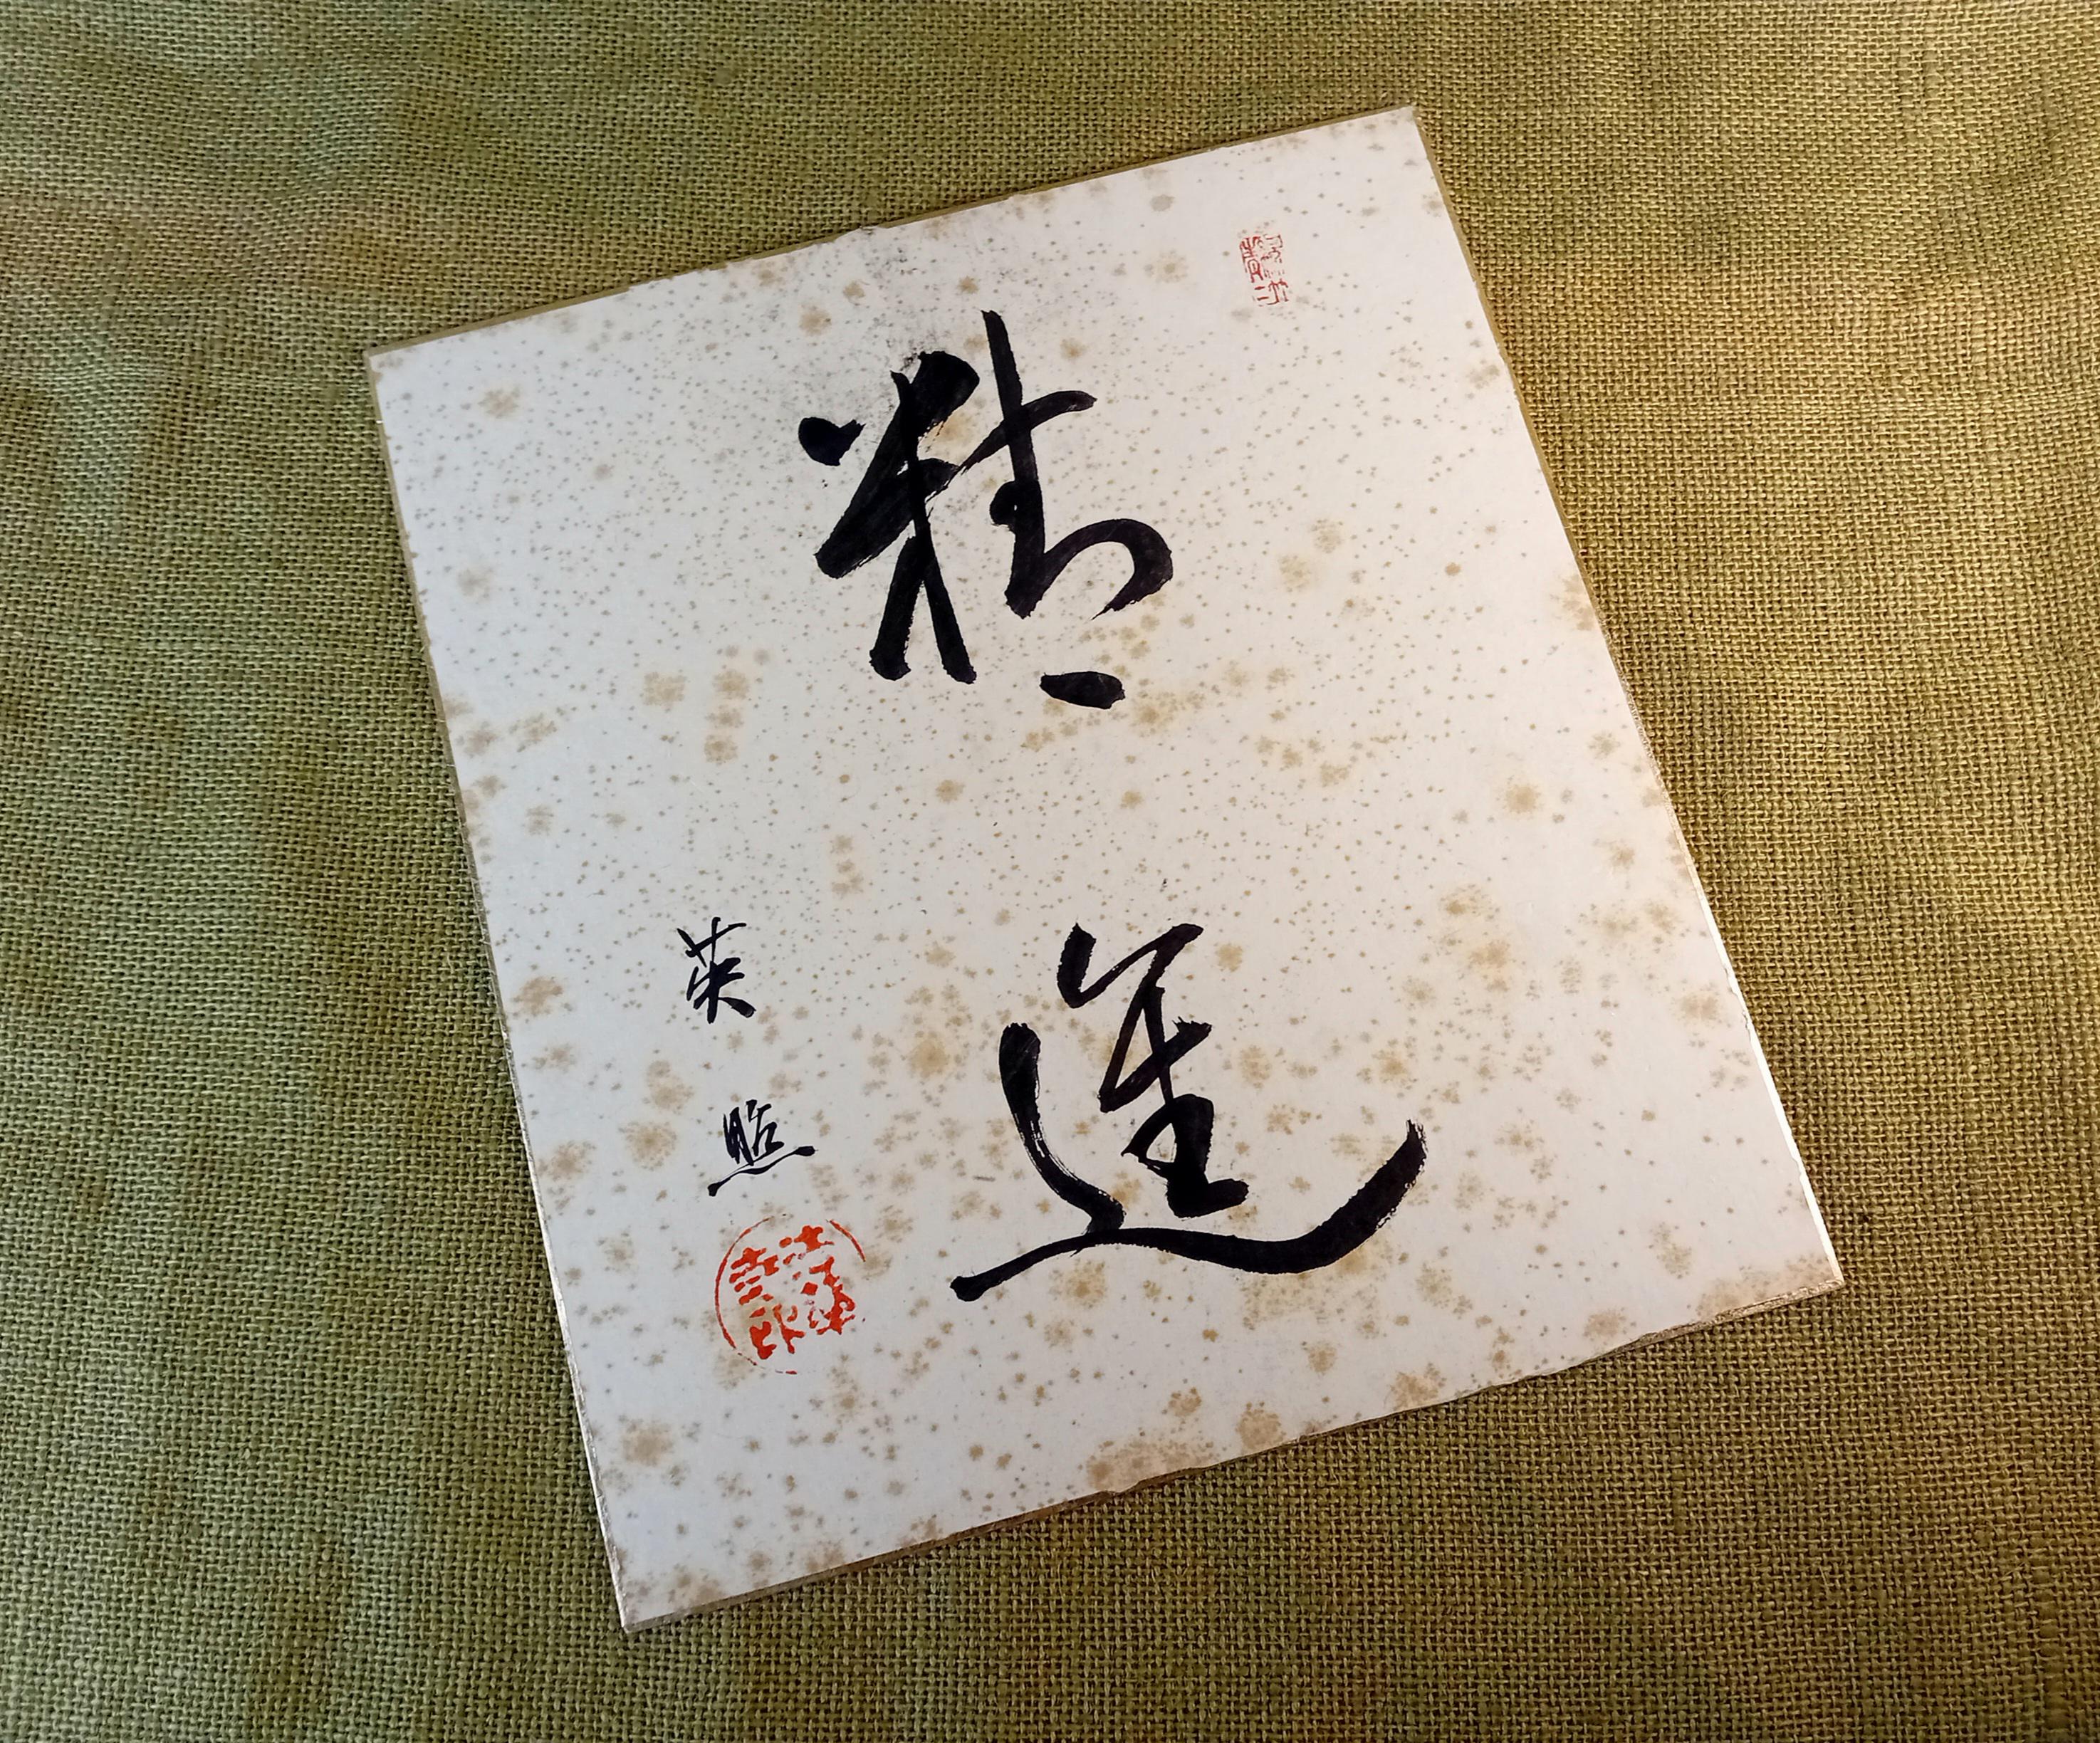 精進
英照